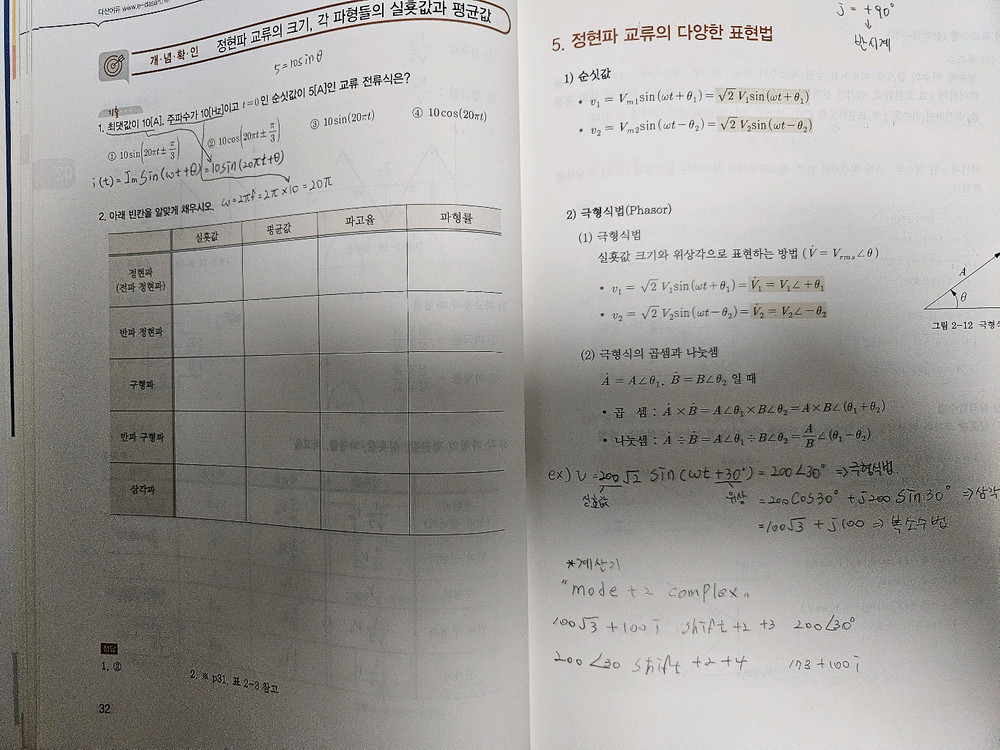 다산에듀 www.e-dasan
개·념·확·인 정현파 교류의 크기, 각 파형들의 실횻값과 평균값
5=10sinθ
1. 최댓값이 10[A], 주파수가 10[Hz]이고 t=0인 순싯값이 5[A]인 교류 전류식은?
① 10sin(20πt±π/3) ② 10cos(20πt±π/3) ③ 10sin(20πt) ④ 10cos(20πt)
i(t)=Im Sin(ωt+θ)=10sin(20πt+θ)
ω=2πf=2π×10=20π
2. 아래 빈칸을 알맞게 채우시오.
실횻값 평균값 파고율 파형률
정현파
(전파 정현파)
반파 정현파
구형파
반파 구형파
삼각파
정답
1. ②
2. ※ p31. 표 2-3 참고
32
j = +90°
반시계
5. 정현파 교류의 다양한 표현법
1) 순싯값
• v₁ = Vm1 sin(ωt+θ₁) = √2 V₁sin(ωt+θ₁)
• v₂ = Vm2 sin(ωt-θ₂) = √2 V₂sin(ωt-θ₂)
2) 극형식법(Phasor)
(1) 극형식법
실횻값 크기와 위상각으로 표현하는 방법 (V̇ = Vrms∠θ)
• v₁ = √2 V₁sin(ωt+θ₁) = V̇₁ = V₁∠+θ₁
• v₂ = √2 V₂sin(ωt-θ₂) = V̇₂ = V₂∠-θ₂
A
θ
그림 2-12 극형식
(2) 극형식의 곱셈과 나눗셈
Ȧ = A∠θ₁, Ḃ = B∠θ₂ 일 때
• 곱 셈 : Ȧ × Ḃ = A∠θ₁ × B∠θ₂ = A×B∠(θ₁+θ₂)
• 나눗셈 : Ȧ ÷ Ḃ = A∠θ₁ ÷ B∠θ₂ = A/B∠(θ₁-θ₂)
ex) V=200√2 Sin(ωt+30°) = 200∠30° ⇒극형식법
실횻값 위상 =200Cos30° + j200 Sin30° ⇒삼각
=100√3 + j100 ⇒ 복소수법
*계산기
"mode + 2 complex"
100√3 + 100i shift +2 +3 200∠30°
200∠30 shift +2+4 173+100i